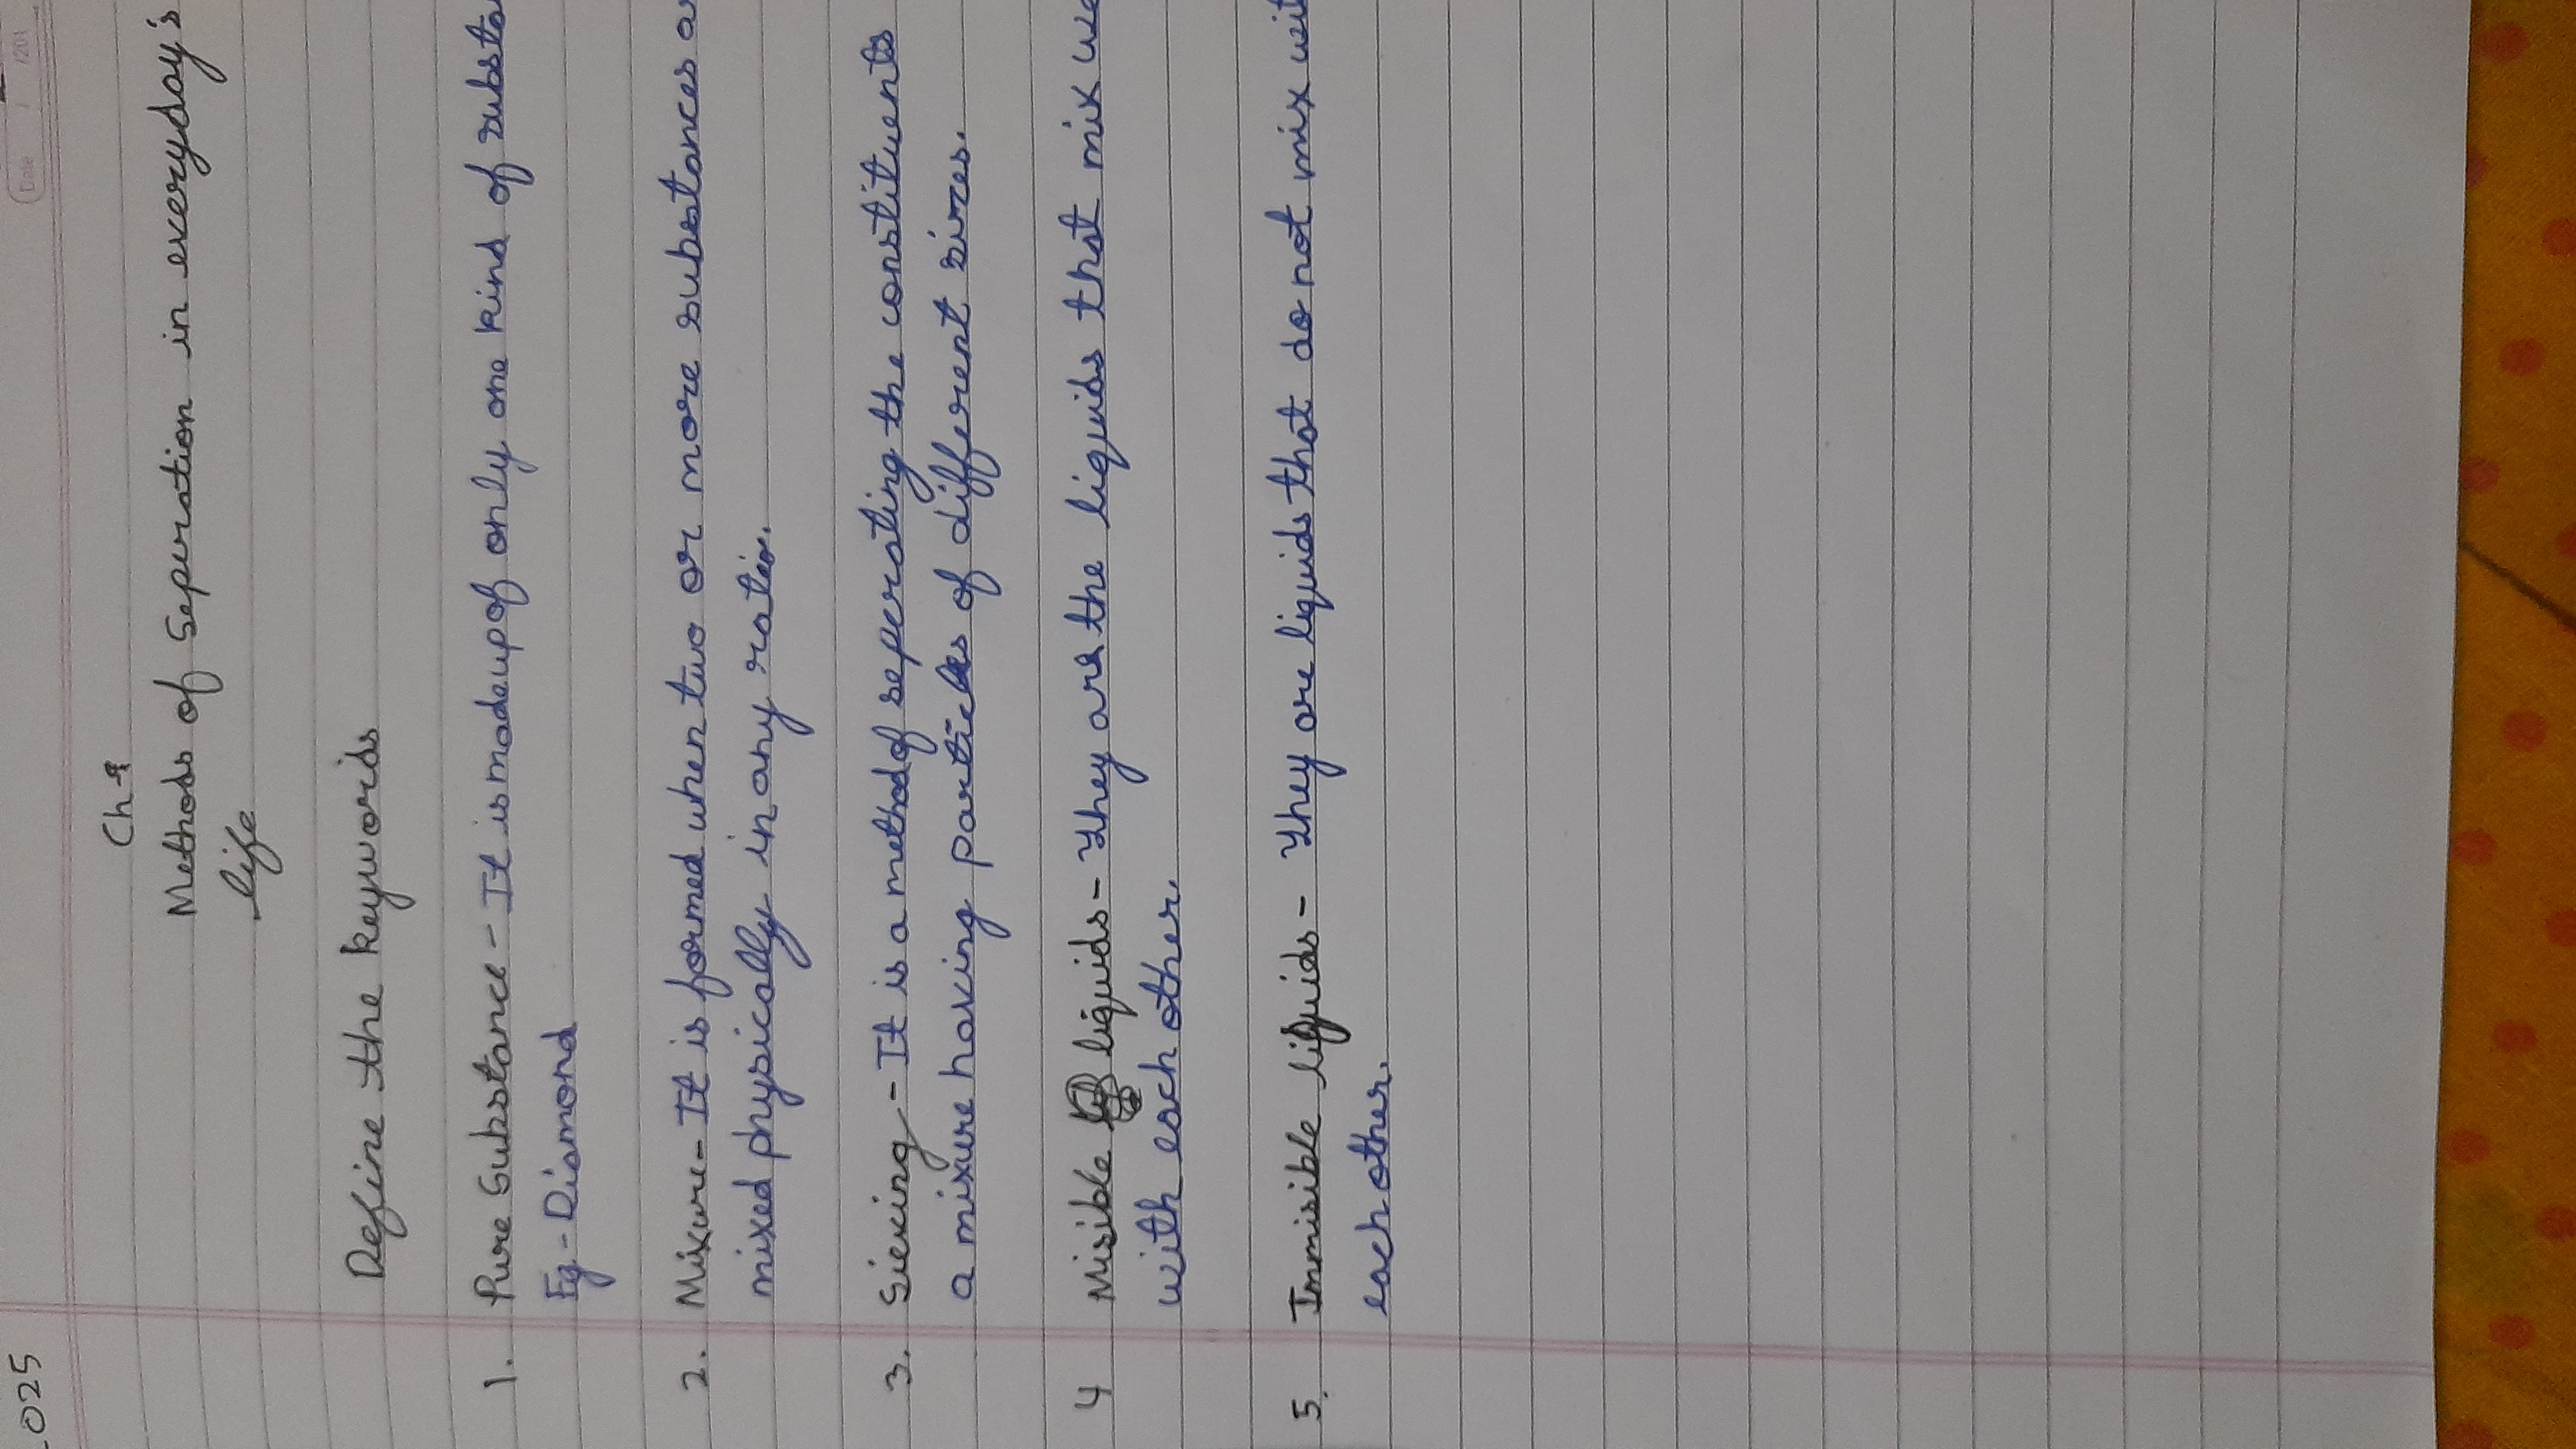 025
Date / /201
Ch-9
Methods of Seperation in everyday's
life
Define the keywords
1. Pure Substance - It is made up of only one kind of substa
Eg - Diamond
2. Mixure - It is formed when two or more substances a
mixed physically in any ratio.
3. Sieving - It is a method of seperating the constituents
a mixure having particles of different sizes.
4 Misible liquids - They are the liquids that mix we
with each other.
5. Immisible liquids - They are liquids that do not mix wit
each other.